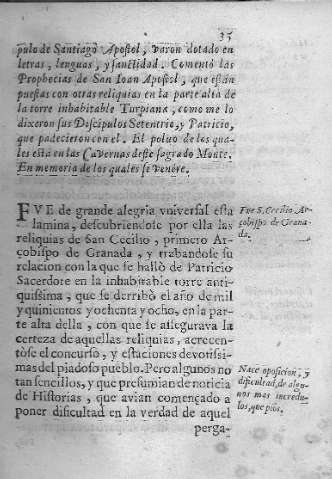 35
pulo de Santiago Apostol, varon dotado en
letras, lenguas, y santidad. Comentò las
Prophecias de San Ioan Apostol, que estàn
puestas con otras reliquias en la parte alta de
la torre inhabitable Turpiana, como me lo
dixeron sus Discipulos Setentrio, y Patricio,
que padecieron con el. El polvo de los qua-
les està en las Cavernas deste sagrado Monte.
En memoria de los quales se venere.
FVE de grande alegria vniversal esta
lamina, descubriendose por ella las
reliquias de San Cecilio, primero Ar-
çobispo de Granada, y trabandose su
relacion con la que se hallò de Patricio
Sacerdote en la inhabitable torre anti-
quissima, que se derribò el año de mil
y quinientos y ochenta y ocho, en la par-
te alta della, con que se assegurava la
certeza de aquellas reliquias, acrecen-
tòse el concurso, y estaciones devotissi-
mas del piadoso pueblo. Pero algunos no
tan sencillos, y que presumian de noticia
de Historias, que avian començado a
poner dificultad en la verdad de aquel
perga-
Fue S. Cecilio Ar-
çobispo de Grana-
da.
Nace oposicion, y
dificultad, de algu-
nos mas incredu-
los, que pios.